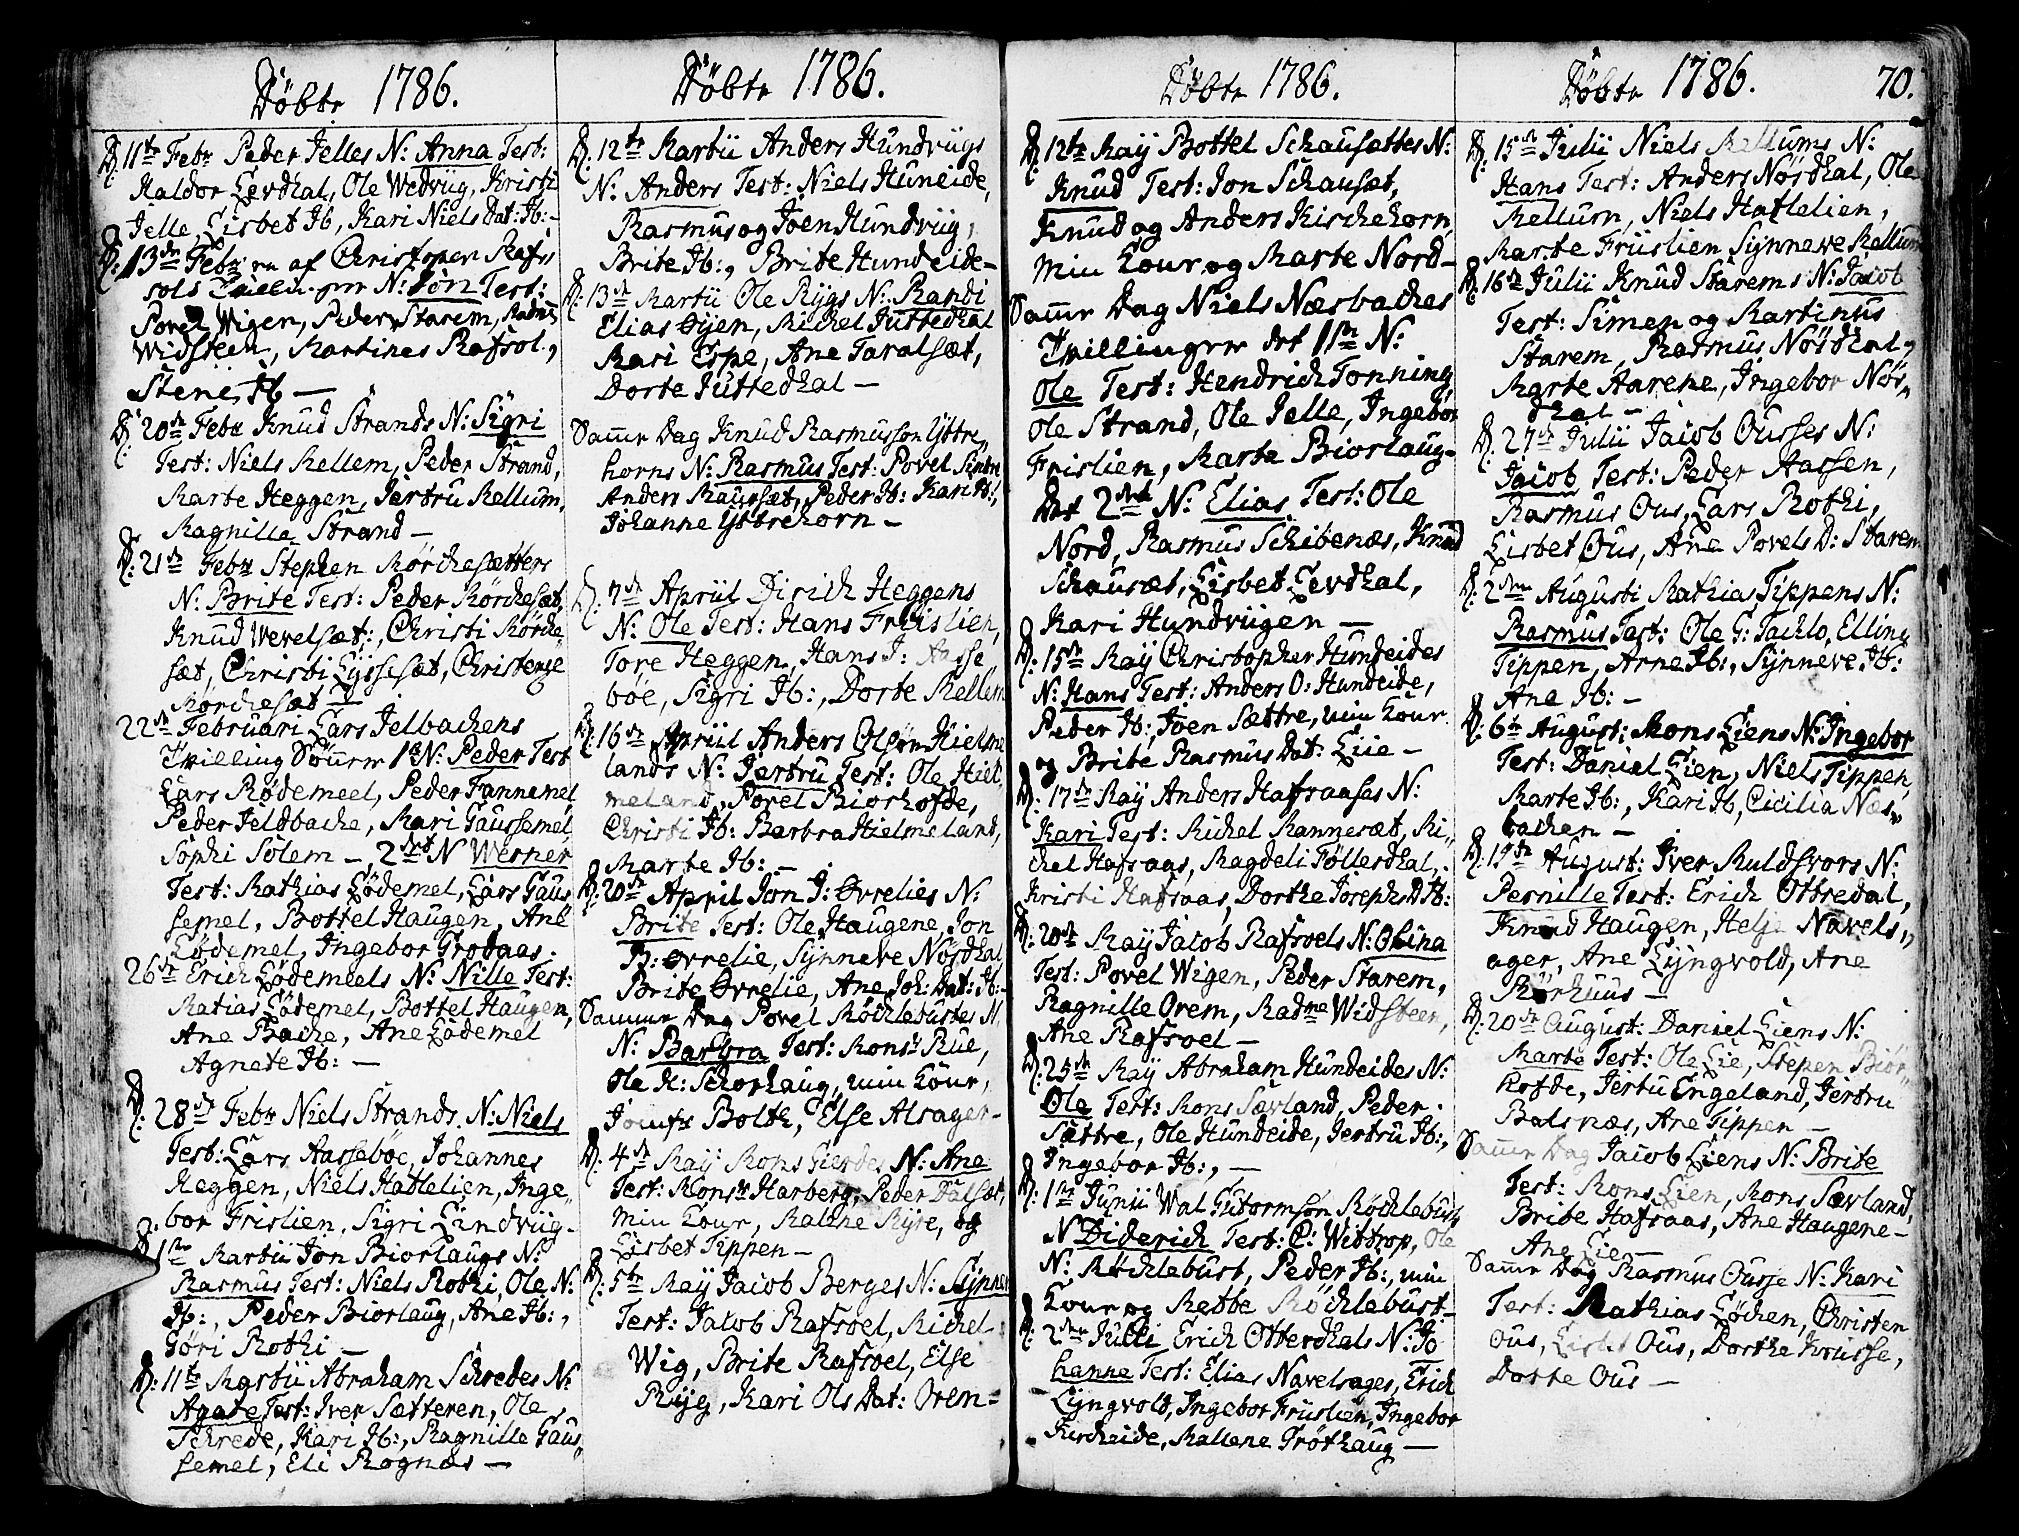 Døbte 1786.
D: 11te Febr Peder Jelles N: Anna Test:
Haldor Levdhal, Ole Wedvüg, Kristi
Jelle, Lisbet Ib, Kari Niels Dat: Ib:-
D: 13de Febr en af Christopher Rafs
sols N: Jørn Test:
Povel Wigen, Peder Starem, Rasmus
Widsteen, Martines Rafsol,
Stene Ib —
D: 20de Febr Knud Strands N: Sigri
Test: Niels Mellem, Peder Strand,
Marte Heggen, Jertru Mellum,
Ragnille Strand —
D: 21de Febr Stephen Mörchesætters
N: Brite Test: Peder Mörchesæt,
Knud Wevelsæt, Christi Mörche
sæt, Christi Lyssesæt, Christense
Mörchesæt —
22de Februari Lars Jelbachens
Tvilling Sønner 1te N: Peder Test
Lars Mødemeel, Peder Fannemel,
Peder Jeldbache, Mari Gaussemel,
Sophi Solem —, 2det N Werner
Test: Mathias Lødemel, Lars Gaus
semel, Bottel Haugen, Ane
Lødemel, Ingebor Grodaas.
26de Erich Lødemeels N: Nille Test:
Matias Lødemel, Bottel Haugen,
Ane Bache, Ane Lødemel
Agnete Ib: —
D: 28de Febr Niels Strands N: Niels
Test: Lars Aassebøe, Johannes
Heggen, Niels Hattelien, Inge„
bor Frislien, Sigri Lindvüg-
D: 1ste Martii Jon Biorlaugs N:
Rasmus Test: Niels Rothi, Ole N:
Ib:, Peder Biorlaug, Ane Ib:,
Gøri Rothi —
D: 11te Martii Abraham Schredes N:
Agate Test: Iver Sætteren, Ole
Schrede, Kari Ib:, Ragnille Gaus„
semel, Eli Rognæs —
Døbte 1786.
D: 12te Martii Anders Hundvügs
N: Anders Test: Niels Huneide,
Rasmus og Joen Hundvüg,
Brite Ib:, Brite Hundeide-
D: 13de Martii Ole Rygs N: Randi
Elias Øyen, Michel Juttedhal
Mari Espe, Ane Taralsæt,
Dorte Juttedhal —
Samme Dag Knud Rasmusson Yttre„
horns N: Rasmus Test: Povel
Anders Maursæt, Peder Ib: Kari Ib:,
Johanne Yttrehorn —
D: 7de Apriil Dirich Heggens
N: Ole Test: Hans Frislien,
Tore Heggen, Hans J: Aasse
bøe, Sigri Ib:, Dorte Mellem
D: 16de Apriil Anders Olsøn Hielme
lands N: Jertru Test: Ole Hiel„
meland, Povel Biorhofde,
Christi Ib: Barbra Hielmeland,
Marte Ib: —
D: 20de April Jon J: Ørrelies N:
Brite Test: Ole Haugene, Jon
R: Ørrelie, Synneve Nøsdhal
Brite Ørrelie, Ane Joh: Dat: Ib:-
Samme Dag Povel Røchlebustes M.
N: Barbra Test: Mons: Rue,
Ole H: Schorhaug, min Kone,
Jomfr Bolth, Else Alsager-
D: 4de Maÿ Mons Gierdes N: Ane
Test: Monsr Harberg, Peder Dalsæt,
Min Kone, Malene Myre, og
Lisbet Tippen —
D: 5te Maÿ Jacob Berges N: Synnev
Test: Jacob Rafsoel, Michel
Wig, Brite Rafsoel, Else
Ryg, Kari Ols Dat: Orem-
Døbte 1786.
D: 12te Maÿ Bottel Schausettes N:
Knud Test: Jon Schausæt,
Knud og Anders Kirchehorn,
Min Kone og Marte Nord-
Samme Dag Niels Næsbaches
Tvillinger det 1ste N:
Ole Test: Hendrich Tonning
Ole Strand, Ole Jelle, Ingebor
Frislien, Marte Biorlaug-
Det 2det N: Elias Test: Ole
Nord, Rasmus Schibenæs, Knud
Schausæt, Lisbet Levdhal,
Kari Hundvügen —
D: 15de Maÿ Christopher Hundeides
N: Hans Test: Anders O: Hundeide,
Peder Ib:, Joen Sættre, min Kone
og Brite Rasmus Dat: Liie —
D: 17de Maÿ Anders Hafsaases N:
Kari Test: Michel Mannesæt, Mi„
chel Hafsaas, Magdeli Føllesdhal,
Kristi Hafsaas, Dorthe Joseph D: Ib:
D: 20de Maÿ Jacob Rafsoels N: Olina
Test: Povel Wigen, Peder Starem,
Ragnille Orem, Madme Widsteen,
Ane Rafsoel —
D: 25de Maÿ Abraham Hundeides N:
Ole Test: Mons Sævland, Peder
Sættre, Ole Hundeide, Jertru Ib:,
Ingebor Ib:, —
D: 1ste Junii Wal Gutormsøn Röchlebust
N Diderich Test: C: Wittrop, Ole
N: Röchlebust, Peder Ib:, min
Kone og Mette Röchlebust
D: 2den Julii Erich Otterdhals N: Jo
hanne Test: Elias Navelsager, Erich
Lyngvold, Ingebor Früslien, Ingebor
Kircheide, Mallene Trøthaug —
Døbte 1786. 70.
D: 15de Julii Niels Mellums N:
Hans Test: Anders Nøsdhal, Ole
Mellum, Niels Hattlelien,
Marte Früslien Synneve Mellum
D: 16de Julii Knud Starems N: Jacob
Test: Simen og Martinus
Starem, Rasmus Nøsdhal,
Marte Aarene, Ingebor Nøs„
dhal —
D: 27de Julii Jacob Ousses N:
Jacob Test: Peder Aassen,
Rasmus Ous, Lars Rothi,
Lisbet Ous, Ane Povels D: Starem
D: 2den Augusti Mathias Tippens N:
Rasmus Test: Ole G: Tachlo, Elling
Tippen, Arne Ib:, Synneve Ib:
Ane Ib: —
D: 6te August: Mons Liens N: Ingebor
Test: Daniel Lien, Niels Tippen,
Marte Ib:, Kari Ib, Cicilia Næs„
bachen —
D: 19de August: Iver Muldsvors N:
Pernille Test: Erich Ottredal,
Knud Haugen, Helje Navels„
ager, Ane Lyngvold, Ane
Mørkuus —
D: 20de August: Daniel Liens N:
Marte Test: Ole Lie, Stepen Biör„
hofde, Jertu Engeland, Jertru
Balsnæs, Ane Tippen —
Samme Dag Jacob Liens N: Brite
Test: Mons Lien, Mons Sævland,
Brite Hafsaas, Ane Haugene-
Ane Lie —
Samme Dag Rasmus Ousse N: Kari
Test: Mathias Løchen, Christen
Ous, Lisbet Ous, Dorthe Krusse,
Dorte Ous —